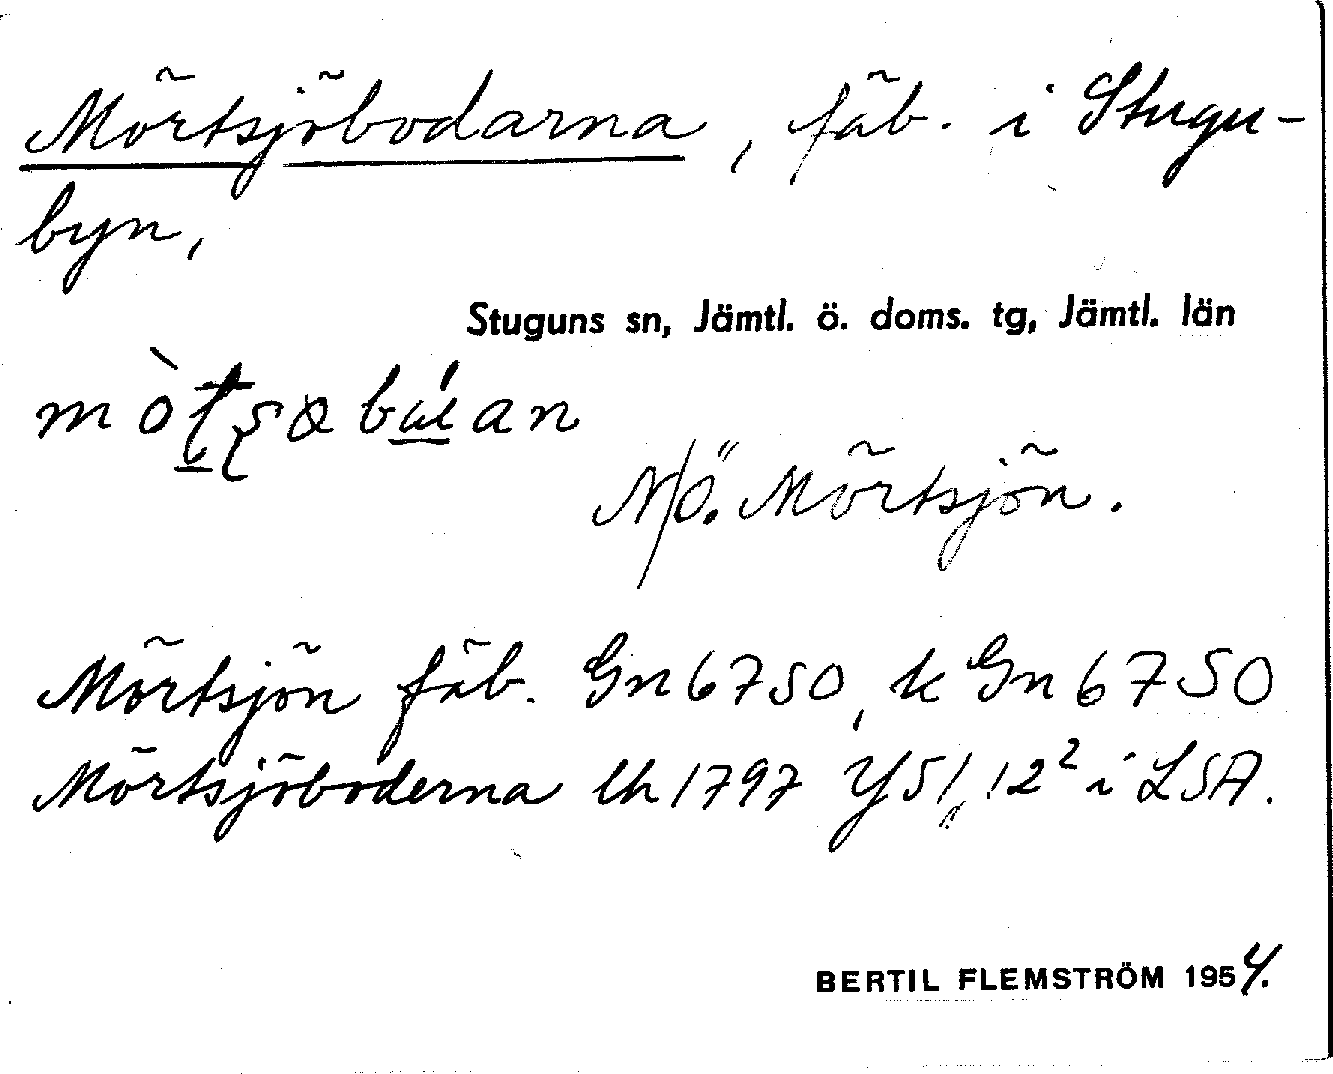 Mörtsjöbodarna, fäb. i Stugu-
byn,
Stuguns sn, Jämtl. ö. doms. tg, Jämtl. län
N/Ö. Mörtsjön.
Mörtsjön fäb. Gn 6750, k Gn 6750
Mörtsjöboderna lh 1797 Y51, 12² i LSA.
BERTIL FLEMSTRÖM 1954.